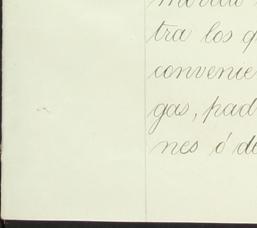 tra los q
convenie
gas, pad
nes ó de